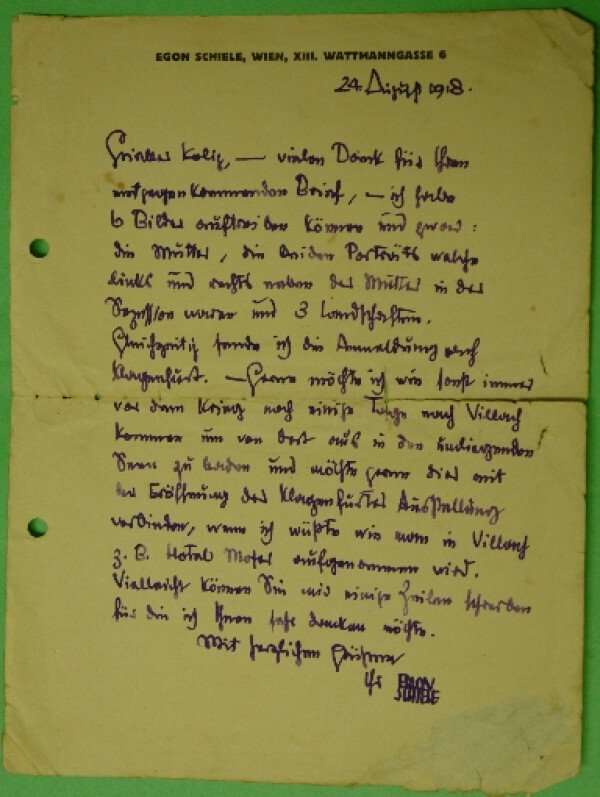 EGON SCHIELE, WIEN, XIII. WATTMANNGASSE 6
24. August 1918.
Kolig, — vielen Dank für Ihren
entgegenkommenden Brief, — ich habe
6 Bilder auftreiben können und zwar:
die Mutter, die beiden Porträts welche
links und rechts neben der Mutter in der
Sezession waren und 3 Landschaften.
Gleichzeitig sende ich die Anmeldung nach
Klagenfurt. — Gerne möchte ich wie sonst immer
vor dem Krieg noch einige Tage nach Villach
kommen um von dort aus in den umliegenden
Seen zu baden und möchte gerne dies mit
der Eröffnung der Klagenfurter Ausstellung
verbinden, wenn ich wüßte wie man in Villach
z. B. Hotel Moser aufgenommen wird.
Vielleicht können Sie mir einige Zeilen schreiben
für die ich Ihnen sehr danken möchte.
Mit herzlichen Grüßen
Ihr EGON
SCHIELE